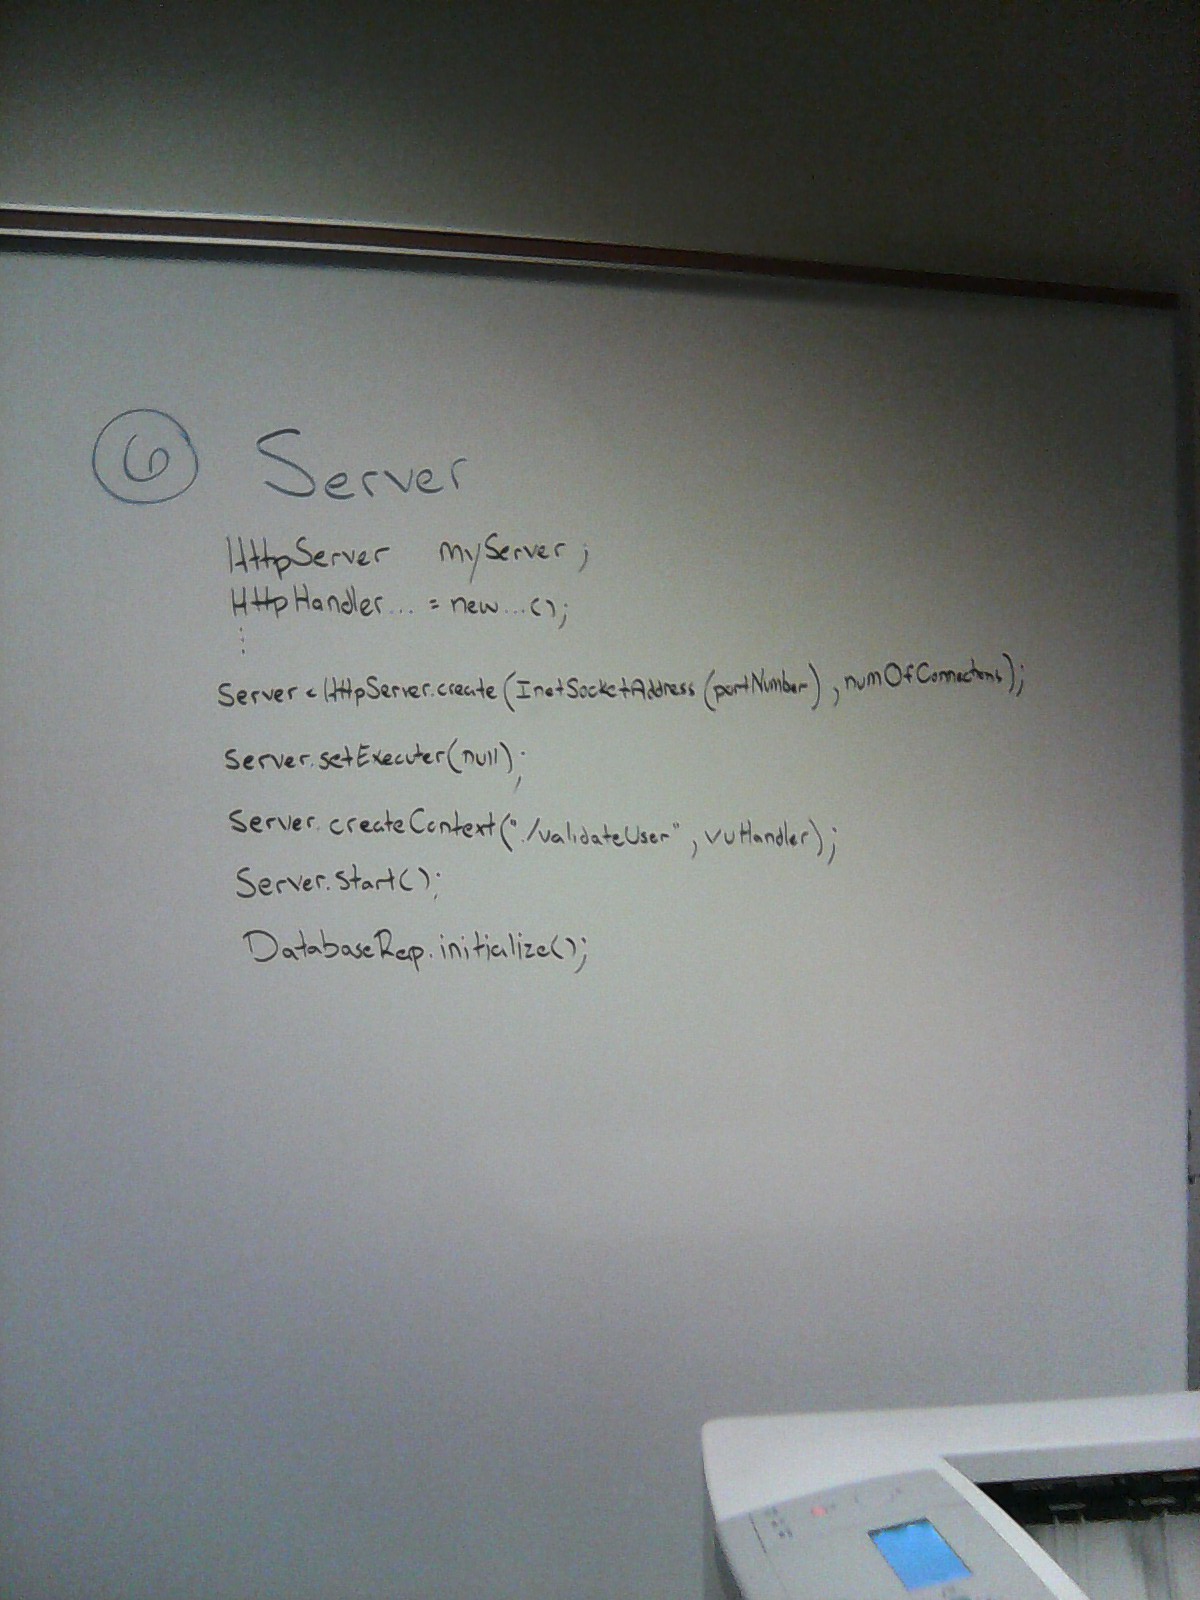 6 Server
HttpServer myServer;
HttpHandler... = new...();
⋮
Server = HttpServer.create(InetSocketAddress(portNumber), numOfConnectons);
Server.setExecuter(null);
Server.createContext("./validateUser", vuHandler);
Server.Start();
DatabaseRep.initialize();